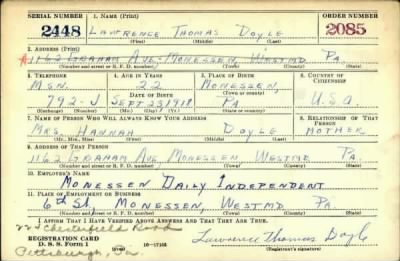 SERIAL NUMBER 1. NAME (Print) ORDER NUMBER
2448 LAWRENCE THOMAS DOYLE 2085
(First) (Middle) (Last)
2. ADDRESS (Print)
1162 GRAHAM AVE. MONESSEN WESTMD PA.
(Number and street or R. F. D. number) (Town) (County) (State)
3. TELEPHONE 4. AGE IN YEARS 5. PLACE OF BIRTH 6. COUNTRY OF CITIZENSHIP
MSN. 22 MONESSEN,
DATE OF BIRTH (Town or county)
792-J SEPT 23 1918 PA U.S.A.
(Exchange) (Number) (Mo.) (Day) (Yr.) (State or country)
7. NAME OF PERSON WHO WILL ALWAYS KNOW YOUR ADDRESS 8. RELATIONSHIP OF THAT PERSON
MRS. HANNAH DOYLE MOTHER
(Mr., Mrs., Miss) (First) (Middle) (Last)
9. ADDRESS OF THAT PERSON
1162 GRAHAM AVE. MONESSEN WESTMD PA.
(Number and street or R. F. D. number) (Town) (County) (State)
10. EMPLOYER'S NAME
MONESSEN DAILY INDEPENDENT
11. PLACE OF EMPLOYMENT OR BUSINESS
6th St, MONESSEN, WESTMD PA.
(Number and street or R. F. D. number) (Town) (County) (State)
I AFFIRM THAT I HAVE VERIFIED ABOVE ANSWERS AND THAT THEY ARE TRUE.
Chesterfield Road
REGISTRATION CARD
D. S. S. Form 1 16-17105 Lawrence Thomas Doyle
Pittsburgh, Pa. (Registrant's signature)